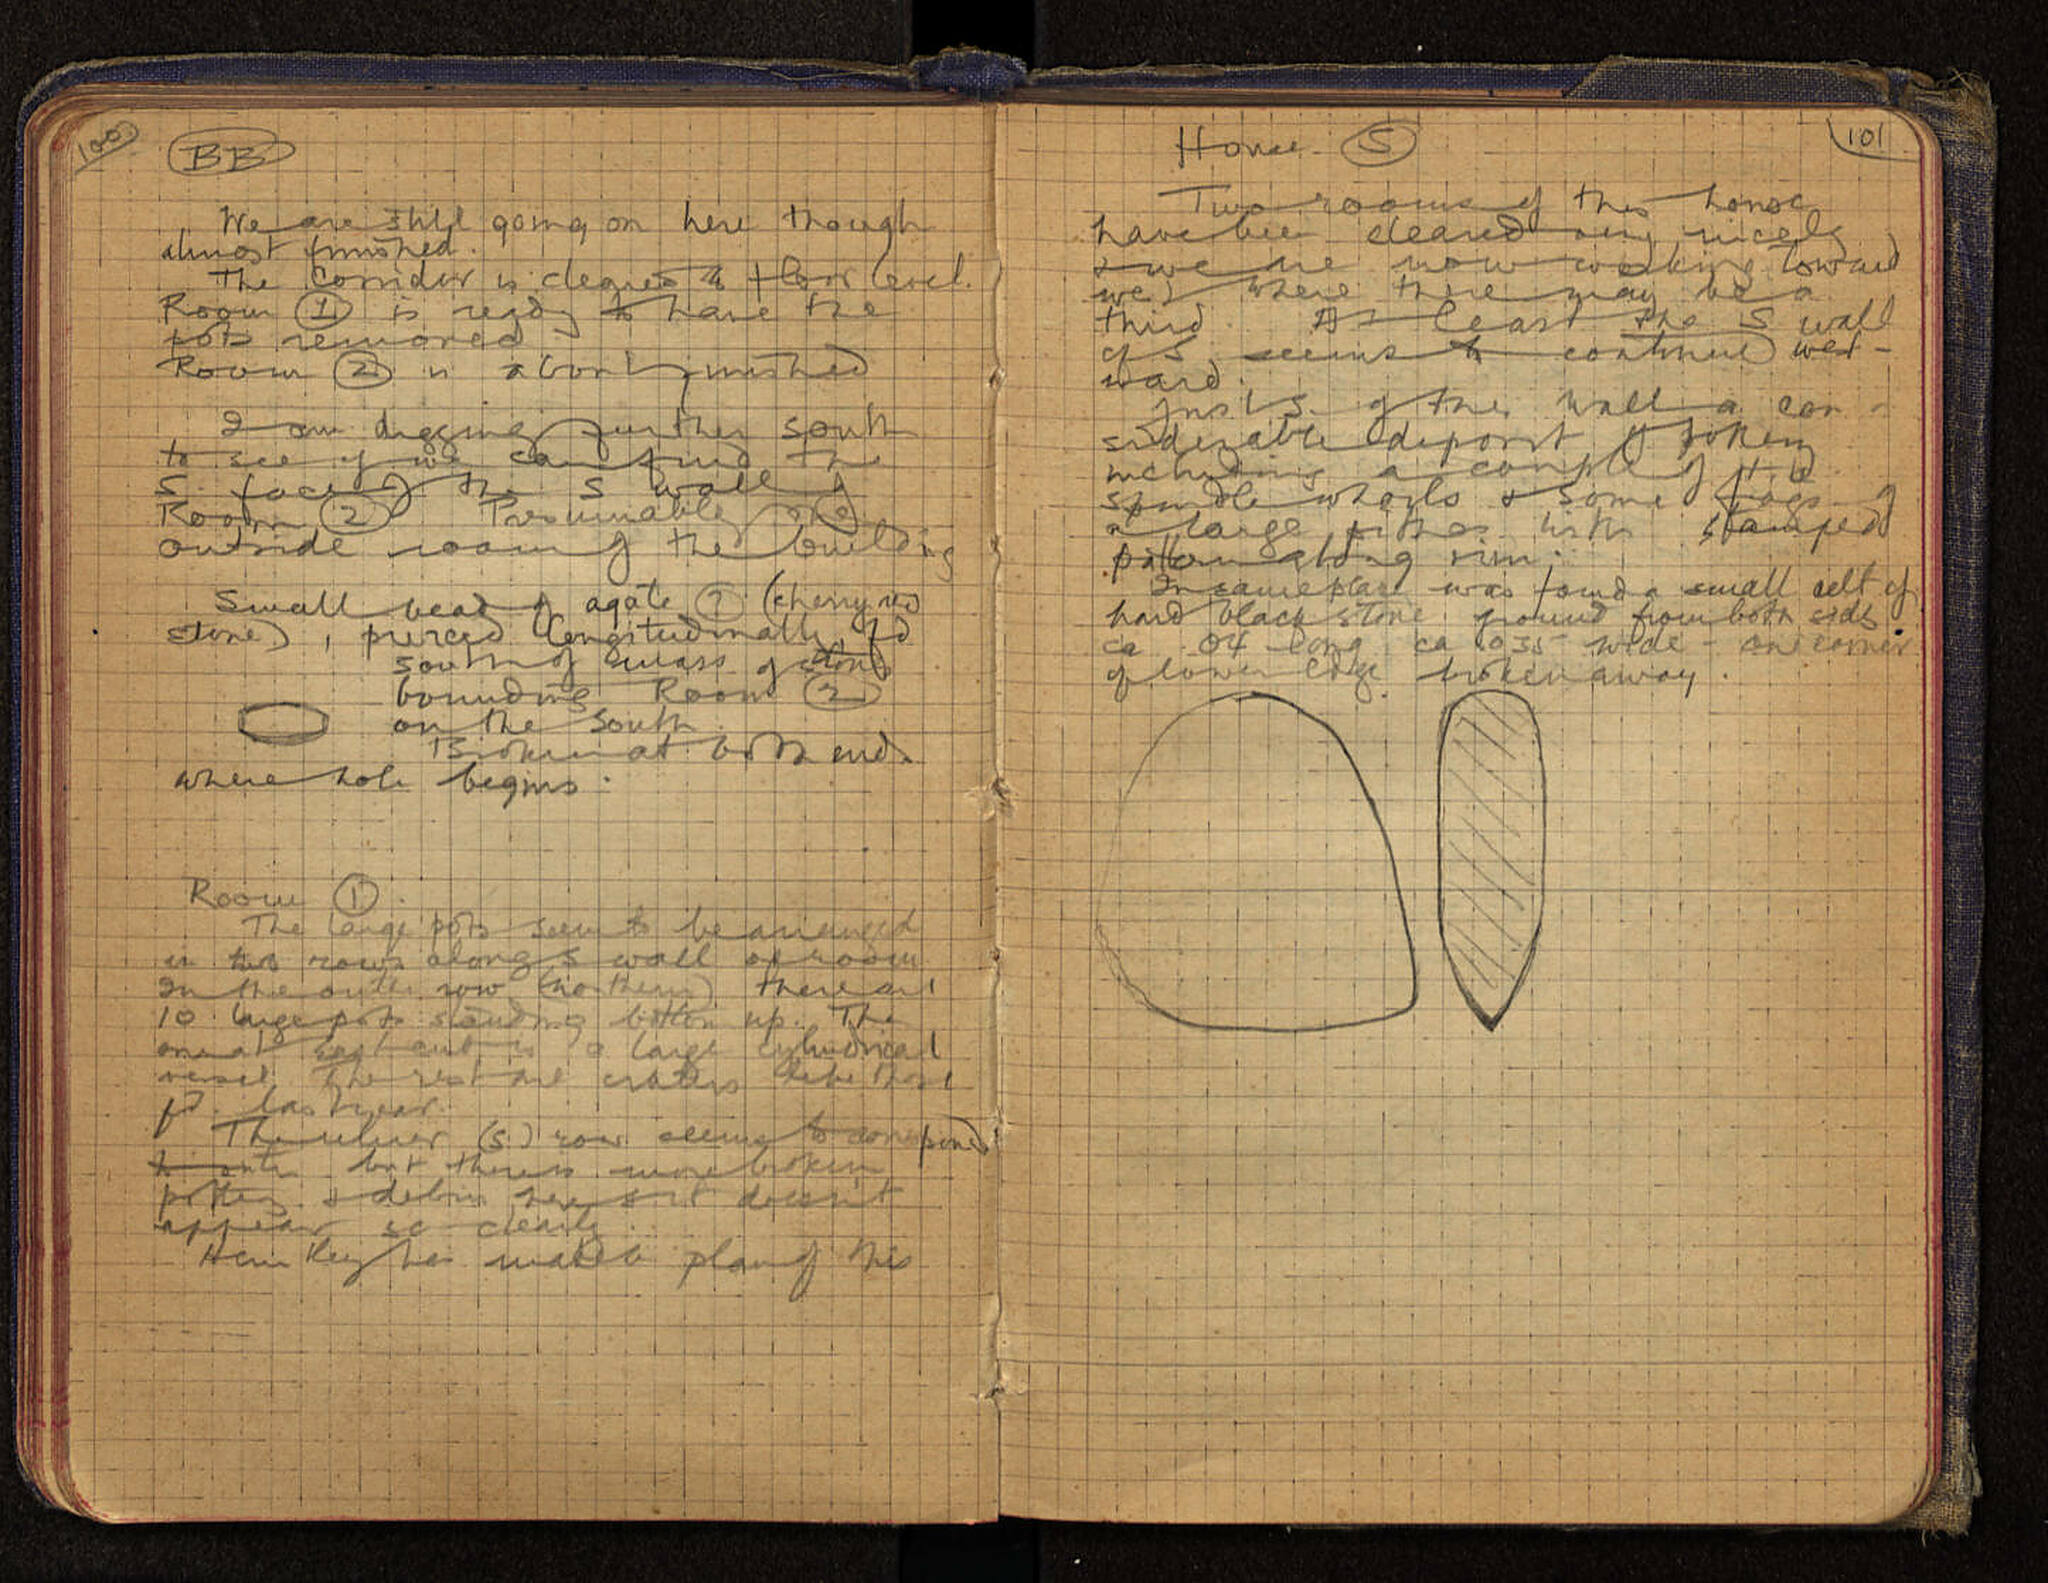 100
BB
We are still going on here though
almost finished.
The corridor is cleared to floor level.
Room 1 is ready to have the
pots removed
Room 2 is about finished
I am digging further south
to see if we can find the
S. face of the S wall of
Room 2 Presumably the
outside room of the building
Small bead of agate ? (cherry red
stone), pierced longitudinally, fd
south of mass of stones
bounding Room 2
on the south
Broken at both ends
where hole begins.
Room 1.
The large pots seem to be arranged
in two rows along S wall of room
In the outer row (northern) there are
10 large pots standing bottom up. The
one at east end is a large cylindrical
vessel. The rest are craters like those
fd. last year.
The inner (S.) row seems to correspond
to outer but there is more broken
pottery & debris here & it doesn't
appear so clearly.
has made plan of this
101
House S
Two rooms of this house
have been cleared very nicely
& we are now working toward
west where there may be a
third. At least the S wall
of S seems to continue west-
ward.
Just S. of the wall a con-
siderable deposit of
including a couple of
spindle whorls & some frags of
a large pithos with stamped
pattern along rim.
In same place was found a small celt of
hard black stone ground from both sides
ca .04 long ca .035 wide - one corner
of lower edge broken away.